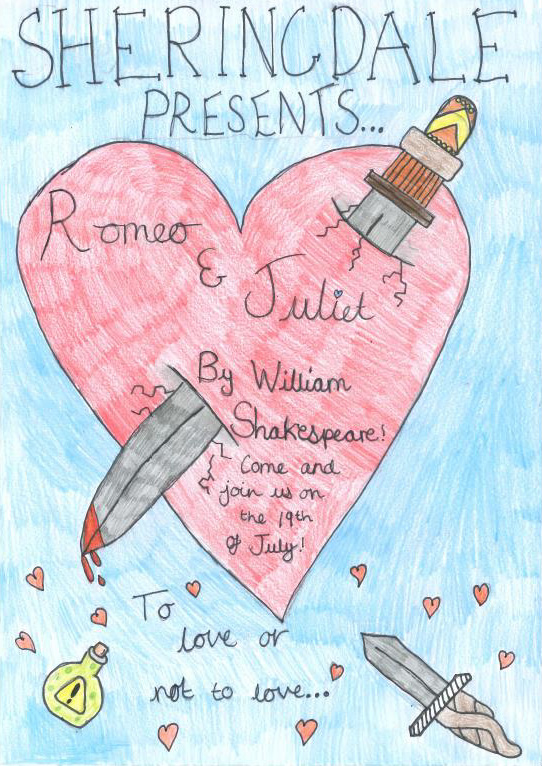 SHERINGDALE
PRESENTS...
Romeo
& Juliet
By William
Shakespeare!
Come and
join us on
the 19th
of July!
To
love or
not to love...
!